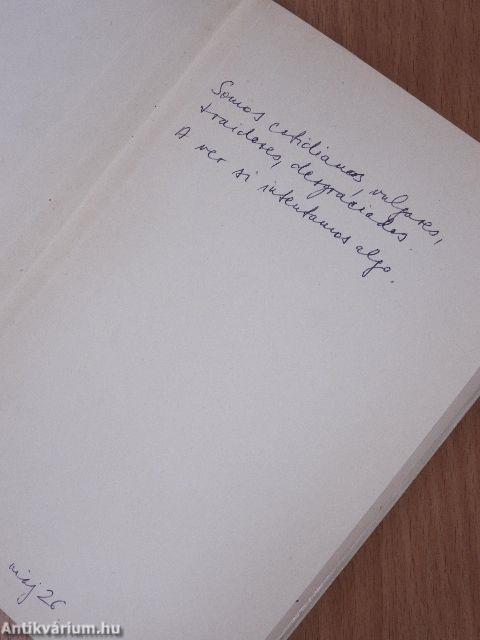 Somos cotidianos, vulgares,
traidores, desgraciados.
A ver si intentamos algo.
máj 26
Antikvárium.hu